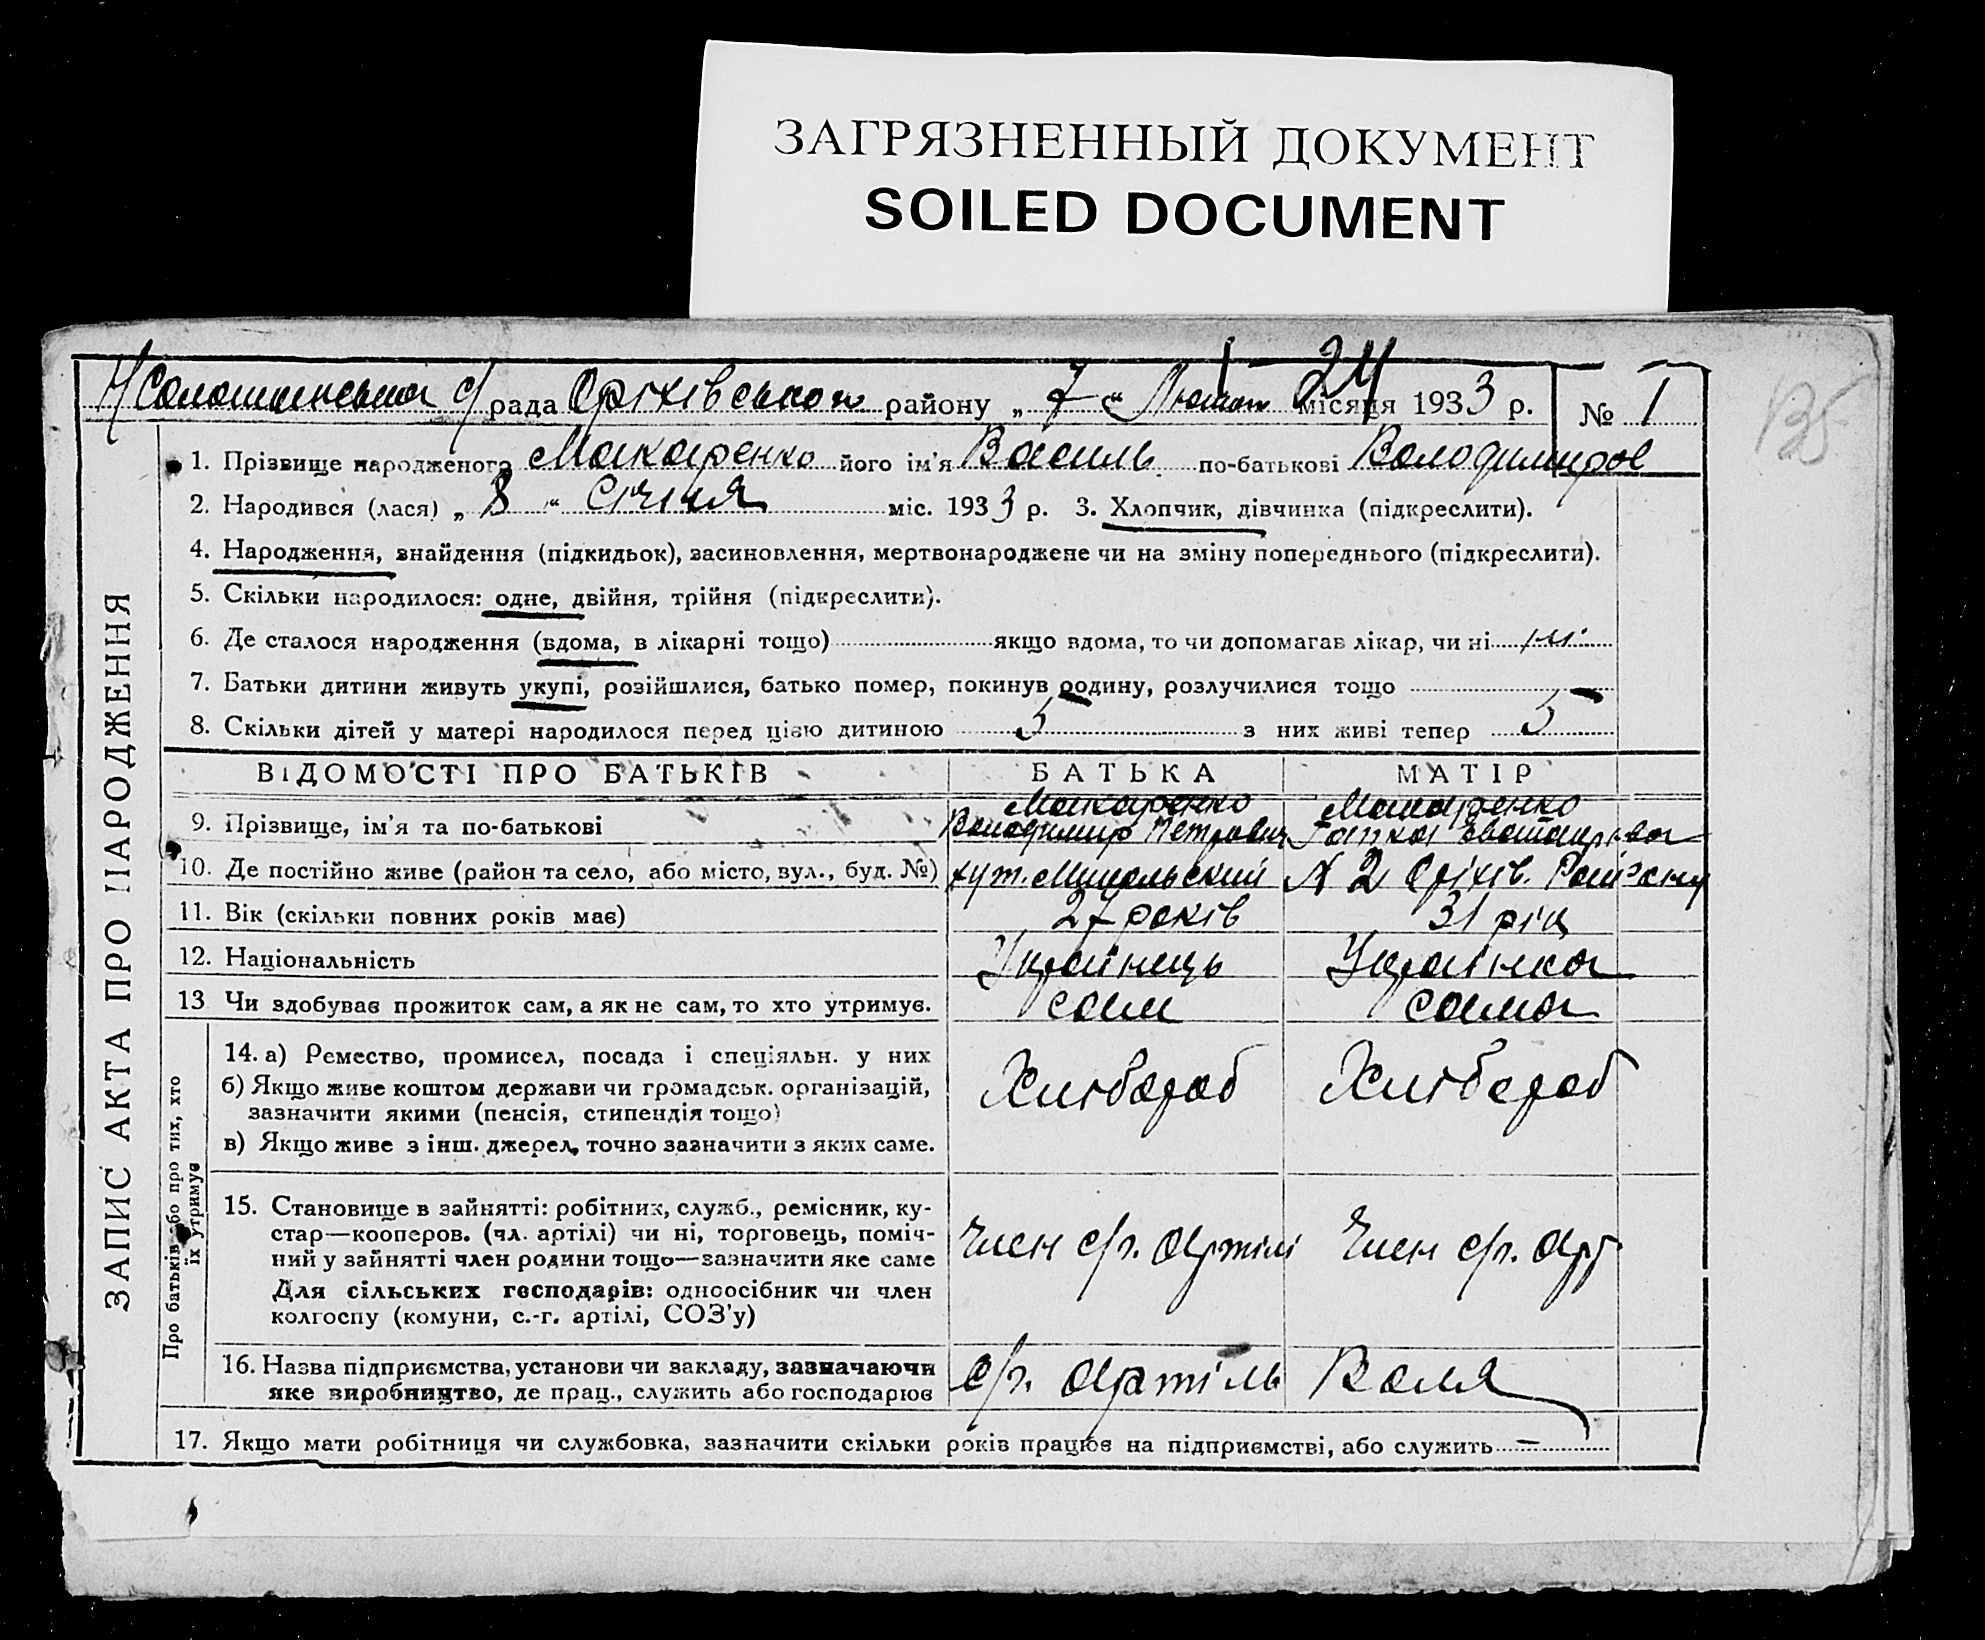 ЗАГРЯЗНЕННЫЙ ДОКУМЕНТ
SOILED DOCUMENT
24
с/рада Оріхівського району „ 7 “ Лютого місяця 1933 р. № 1
135
1. Прізвище народженого Макаренко його ім'я Василь по-батькові Володимиров
2. Народився (лася) „ 8 “ січня міс. 1933 р. 3. Хлопчик, дівчинка (підкреслити).
4. Народження, знайдення (підкидьок), засиновлення, мертвонароджене чи на зміну попереднього (підкреслити).
5. Скільки народилося: одне, двійня, трійня (підкреслити).
6. Де сталося народження (вдома, в лікарні тощо) якщо вдома, то чи допомагав лікар, чи ні ні
7. Батьки дитини живуть укупі, розійшлися, батько помер, покинув родину, розлучилися тощо —
8. Скільки дітей у матері народилося перед цією дитиною 5 з них живі тепер 5
ВІДОМОСТІ ПРО БАТЬКІВ БАТЬКА МАТІР
Макаренко Макаренко
9. Прізвище, ім'я та по-батькові Володимир Петрович Ганна
10. Де постійно живе (район та село, або місто, вул., буд. №) хут. № 2 Оріхів. Району
11. Вік (скільки повних років має) 27 років 31 рік
12. Національність Українець Українка
13. Чи здобуває прожиток сам, а як не сам, то хто утримує. сам сама
14. а) Ремество, промисел, посада і спеціяльн. у них
б) Якщо живе коштом держави чи громадськ. організацій, Хлібороб Хлібороб
зазначити якими (пенсія, стипендія тощо)
в) Якщо живе з інш. джерел, точно зазначити з яких саме.
15. Становище в зайнятті: робітник, служб., ремісник, ку-
стар—кооперов. (чл. артілі) чи ні, торговець, поміч- Член с/г. артілі Член с/г. арт
ний у зайнятті член родини тощо—зазначити яке саме
Для сільських господарів: одноосібник чи член
колгоспу (комуни, с.-г. артілі, СОЗ'у)
16. Назва підприємства, установи чи закладу, зазначаючи с/г. артіль Воля
яке виробництво, де прац., служить або господарює
17. Якщо мати робітниця чи службовка, зазначити скільки років працює на підприємстві, або служить —
ЗАПИС АКТА ПРО НАРОДЖЕННЯ
Про батьків або про тих, хто
їх утримує